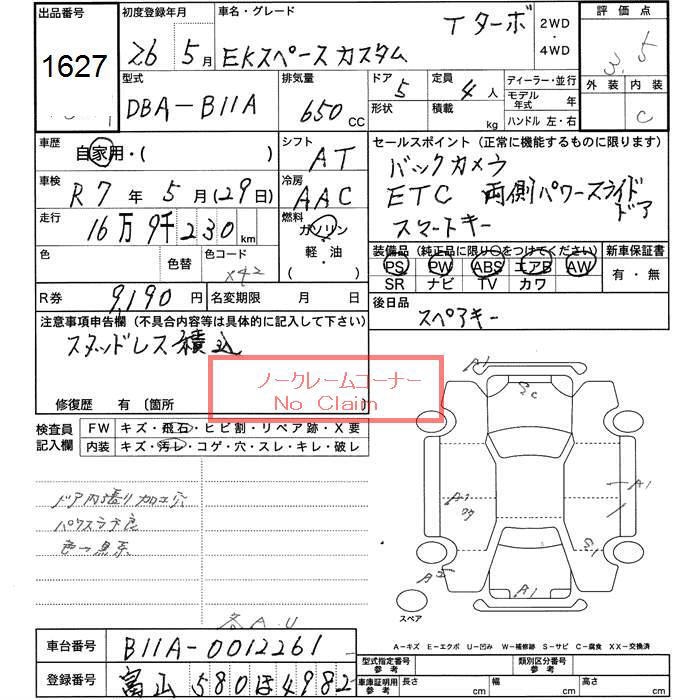 出品番号 初度登録年月 車名・グレード 評価点
1627 26年5月 EKスペース カスタム Tターボ 2WD・4WD 3.5
外装 内装 C
型式 排気量 ドア 定員 ディーラー・並行
DBA-B11A 650 CC 5 4人 モデル年式 年
形状 積載 kg ハンドル 左・右
車歴 自家用・( ) シフト AT
セールスポイント (正常に機能するものに限ります)
車検 R7年5月(29日) 冷房 AAC
バックカメラ
ETC 両側パワースライドドア
スマートキー
走行 16万9千230km 燃料 ガソリン・軽・油・( )
色 色替 色コード X42
装備品 (純正品に限り○をつけてください) 新車保証書
PS PW ABS エアB AW 有・無
SR ナビ TV カワ
R券 9,190円 名変期限 月 日
後日品 スペアキー
注意事項申告欄 (不具合内容等は具体的に記入して下さい)
スタッドレス積込
ノークレームコーナー
No Claim
修復歴 有 〔箇所
検査員記入欄 FW キズ・飛石・ヒビ割・リペア跡・X要
内装 キズ・汚レ・コゲ・穴・スレ・キレ・破レ
ドア内張り加工穴
色→黒系
各A.U
A1
A1
A1
スペア
A-キズ E-エクボ U-凹み W-補修跡 S-サビ C-腐食 XX-交換済
車台番号 B11A-0012261
型式指定番号 参考 類別区分番号 参考
登録番号 富山 580 ほ 4982
車庫証明用 参考 長さ cm 幅 cm 高さ cm